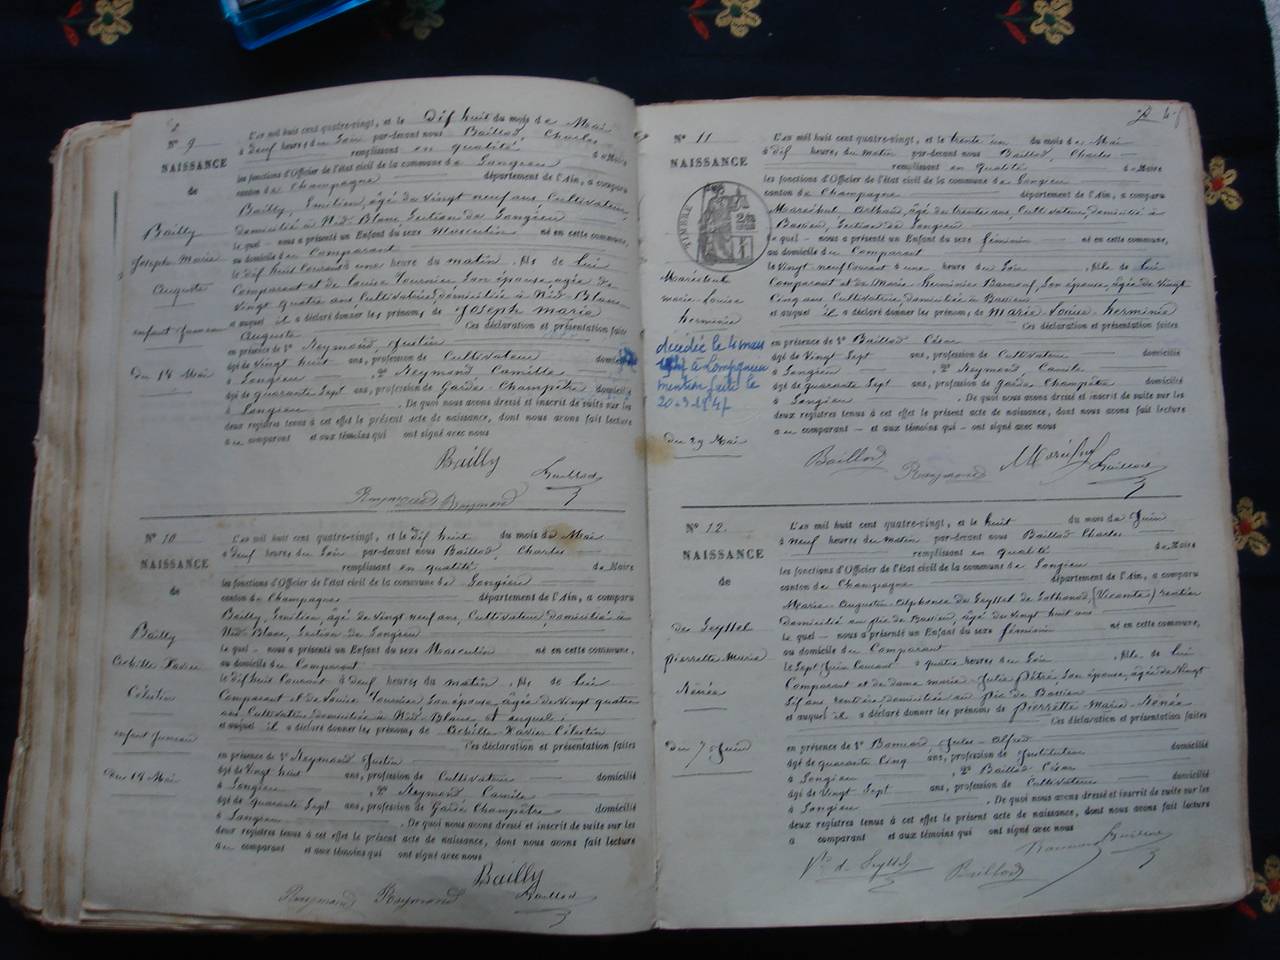 Nº 9
NAISSANCE
de
Bailly
Joseph Marie
Auguste
enfant jumeau
du 18 Mai
L'an mil huit cent quatre-vingt, et le dix huit du mois de Mai
à neuf heures du soir par-devant nous Baillod, Charles
remplissant en qualité de Maire
les fonctions d'Officier de l'état civil de la commune de Songieu
canton de Champagne département de l'Ain, a comparu
Bailly, Emilien, âgé de vingt neuf ans, Cultivateur,
domicilié à Nid Blanc Section de Songieu
le quel - nous a présenté un Enfant du sexe Masculin né en cette commune,
au domicile du Comparant
le dix huit Courant à une heure du matin, fils de lui
Comparant et de Louise Tournier son épouse, agée de
Vingt quatre ans Cultivatrice, domiciliée à Nid Blanc
et auquel il a déclaré donner les prénoms de Joseph Marie
Auguste Ces déclaration et présentation faites
en présence de Sr Reymond, Justin
âgé de vingt huit ans, profession de Cultivateur domicilié
à Songieu, et Reymond Camille
âgé de quarante Sept ans, profession de Garde Champêtre domicilié
à Songieu. De quoi nous avons dressé et inscrit de suite sur les
deux registres tenus à cet effet le présent acte de naissance, dont nous avons fait lecture
au comparant et aux témoins qui ont signé avec nous
Bailly
Baillod
Reymond Reymond
Nº 10
NAISSANCE
de
Bailly
Achille Xavier
Célestin
enfant jumeau
du 18 Mai
L'an mil huit cent quatre-vingt, et le dix huit du mois de Mai
à neuf heures du soir par-devant nous Baillod, Charles
remplissant en qualité de Maire
les fonctions d'Officier de l'état civil de la commune de Songieu
canton de Champagne département de l'Ain, a comparu
Bailly, Emilien, âgé de vingt neuf ans, Cultivateur, domicilié à
Nid Blanc, Section de Songieu
le quel - nous a présenté un Enfant du sexe Masculin né en cette commune,
au domicile du Comparant
le dix huit Courant à deux heures du matin, fils de lui
Comparant et de Louise Tournier son épouse, âgée de vingt quatre
ans Cultivatrice, domiciliée à Nid Blanc et auquel
il a déclaré donner les prénoms de Achille Xavier Célestin
Ces déclaration et présentation faites
en présence de Sr Reymond Justin
âgé de vingt huit ans, profession de Cultivateur domicilié
à Songieu, et Reymond, Camille
âgé de quarante Sept ans, profession de Garde Champêtre domicilié
à Songieu. De quoi nous avons dressé et inscrit de suite sur les
deux registres tenus à cet effet le présent acte de naissance, dont nous avons fait lecture
au comparant et aux témoins qui ont signé avec nous
Bailly
Baillod
Reymond Reymond
Nº 11
NAISSANCE
TIMBRE
Maréchal
marie-louise
herminie
décédée le 4 mars
mention faite le
du 29 Mai
L'an mil huit cent quatre-vingt, et le trente un du mois de Mai
à dix heures du matin par-devant nous Baillod, Charles
remplissant en Qualité de Maire
les fonctions d'Officier de l'état civil de la commune de Songieu
canton de Champagne département de l'Ain, a comparu
Maréchal âgé de trente ans, Cultivateur, domicilié à
Bassieu, Section de Songieu
le quel - nous a présenté un Enfant du sexe féminin né en cette commune,
au domicile du Comparant
le vingt neuf Courant à une heure du soir, fille de lui
Comparant et de Marie herminie son épouse, âgée de Vingt
Cinq ans, Cultivatrice, domiciliée à Bassieu
et auquel il a déclaré donner les prénoms de Marie Louise herminie
Ces déclaration et présentation faites
en présence de Sr Baillod César
âgé de Vingt Sept ans, profession de Cultivateur domicilié
à Songieu, et Reymond, Camille
âgé de quarante Sept ans, profession de Garde Champêtre domicilié
à Songieu. De quoi nous avons dressé et inscrit de suite sur les
deux registres tenus à cet effet le présent acte de naissance, dont nous avons fait lecture
au comparant - et aux témoins qui - ont signé avec nous
Baillod Reymond Maréchal Baillod
Nº 12
NAISSANCE
de
de Seyssel
pierrette Marie
Renée
du 7 Juin
L'an mil huit cent quatre-vingt, et le huit du mois de Juin
à neuf heures du matin par-devant nous Baillod Charles
remplissant en qualité de Maire
les fonctions d'Officier de l'état civil de la commune de Songieu
canton de Champagne département de l'Ain, a comparu
Marie-Augustin-Alphonse de Seyssel de Sothonod, (Vicomte) rentier
domicilié au pié de Bassieu, âgé de vingt huit ans
le quel - nous a présenté un Enfant du sexe féminin né en cette commune,
au domicile du Comparant
le Sept Juin Courant à quatre heures du soir, fille de lui
Comparant et de dame marie Julie son épouse, âgée de Vingt
Six ans, rentière domiciliée au pié de Bassieu
et auquel il a déclaré donner les prénoms de pierrette Marie Renée
Ces déclaration et présentation faites
en présence de Sr Bonnard, Jules-Alfred
âgé de quarante Cinq ans, profession de Instituteur
à Songieu, et Baillod César
âgé de Vingt Sept ans, profession de Cultivateur domicilié
à Songieu. De quoi nous avons dressé et inscrit de suite sur les
deux registres tenus à cet effet le présent acte de naissance, dont nous avons fait lecture
au comparant et aux témoins qui ont signé avec nous
Vte de Seyssel Baillod Bonnard Baillod